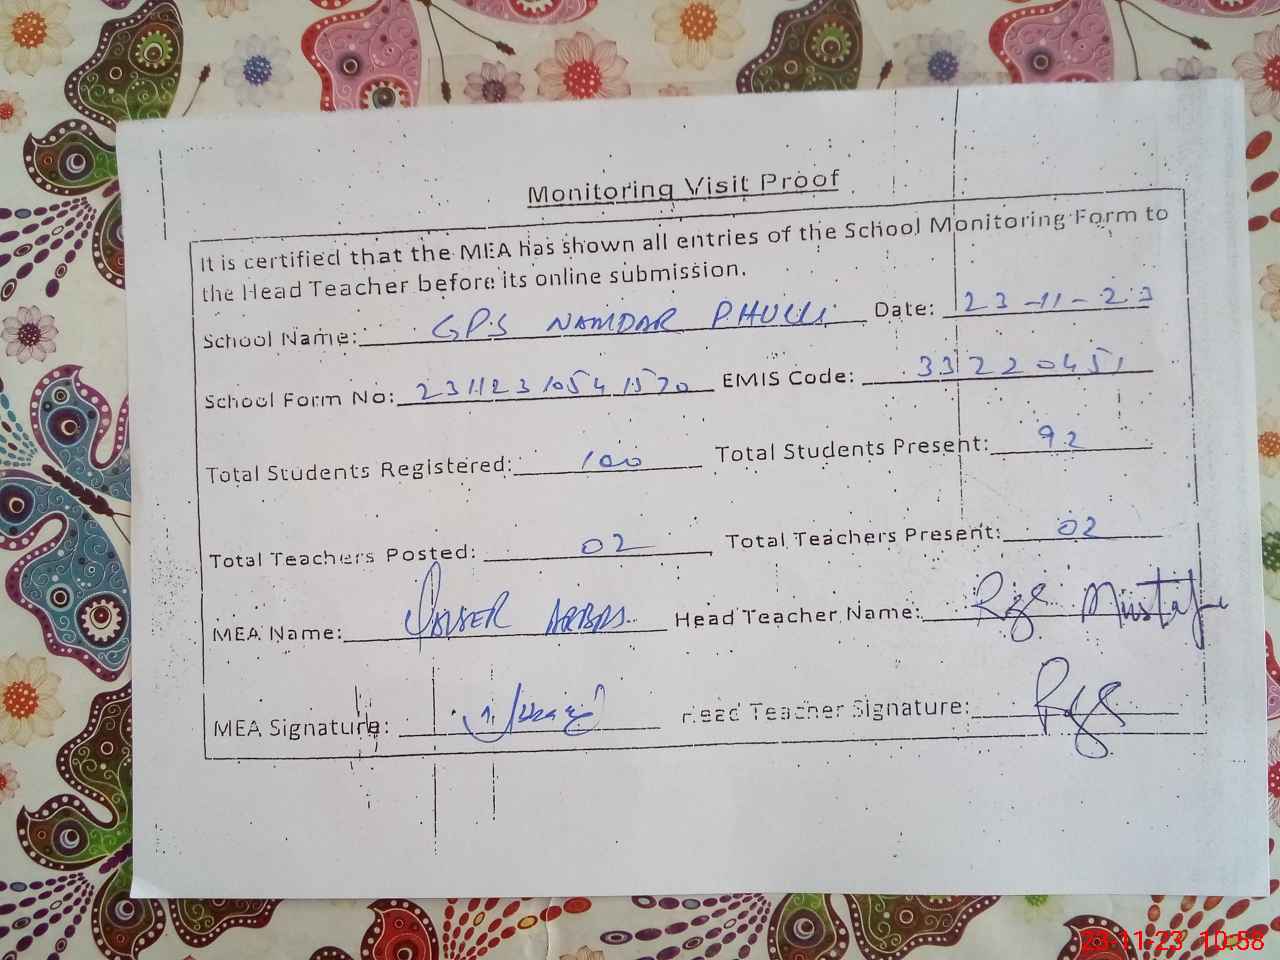 Monitoring Visit Proof
It is certified that the MEA has shown all entries of the School Monitoring Form to
the Head Teacher before its online submission.
School Name: GPS NAMDAR PHULLI Date: 23-11-23
School Form No: 23112310541570 EMIS Code: 33220451
Total Students Registered: 100 Total Students Present: 92
Total Teachers Posted: 02 Total Teachers Present: 02
MEA Name: ABBAS Head Teacher Name: Mustafa
MEA Signature: Head Teacher Signature:
23-11-23 10:58